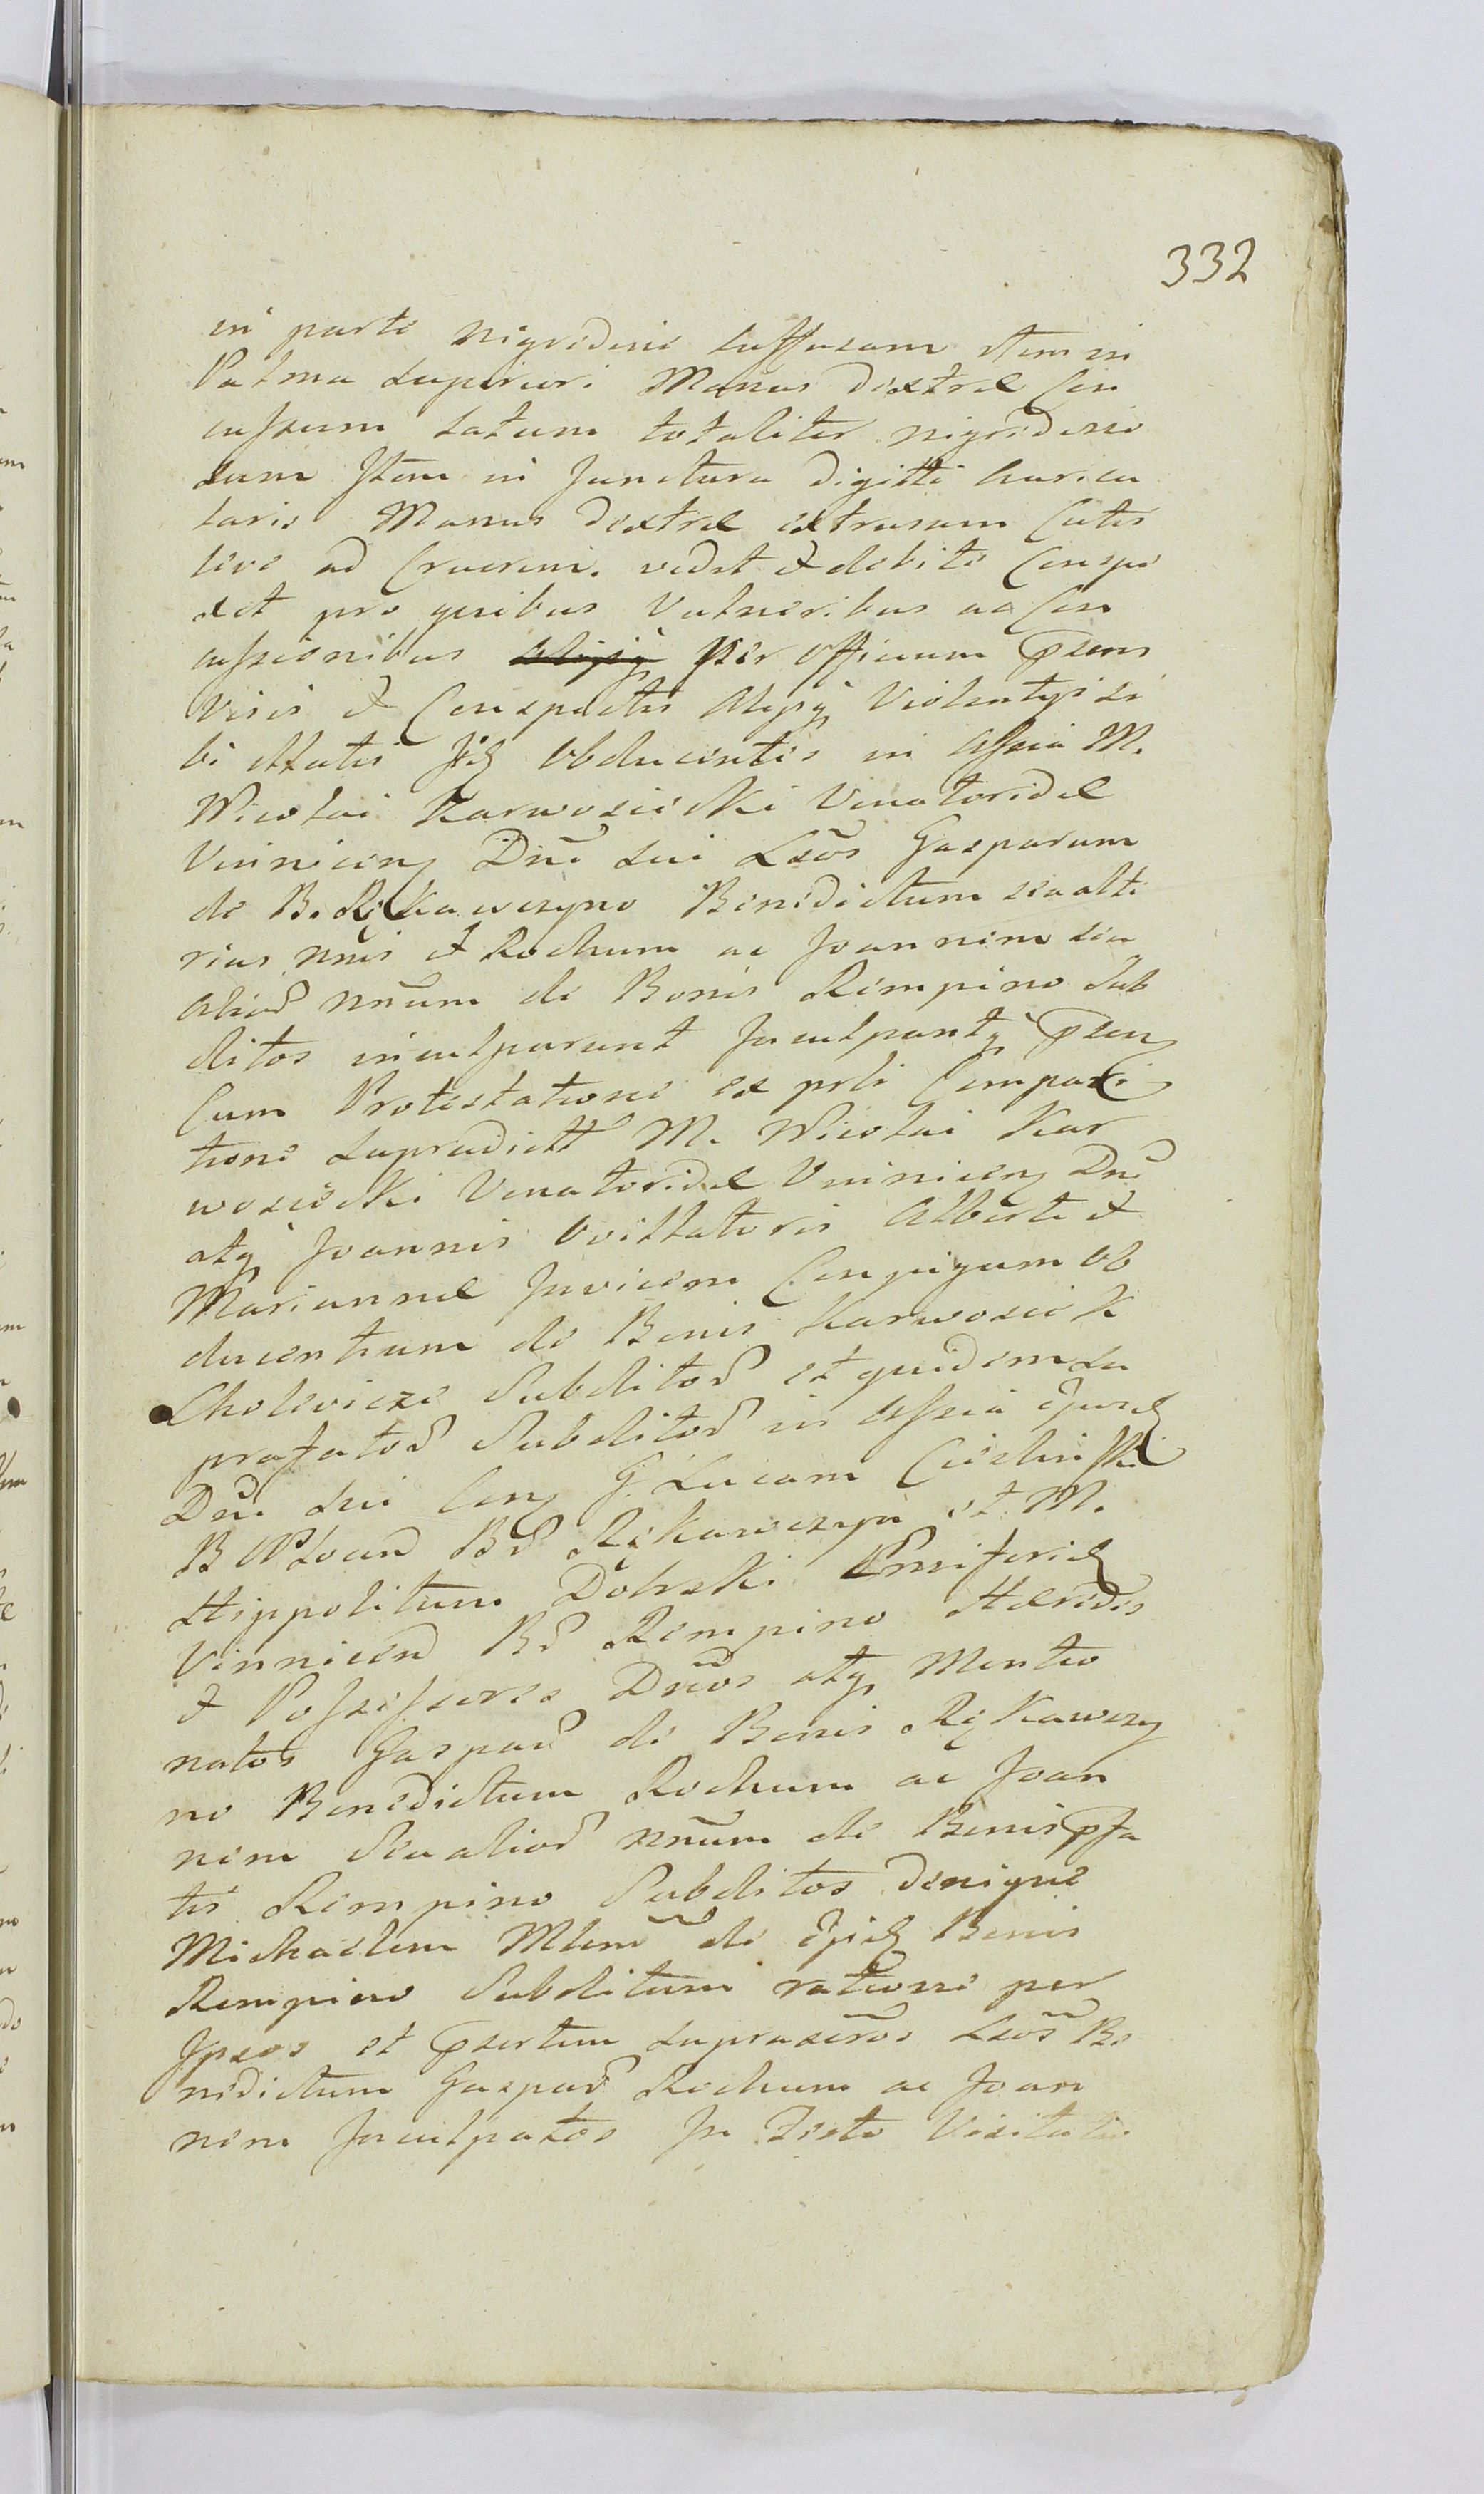 332
in parte nigredine suffusam item in
Palma superiori Manus dextrae Con
cussum latum totaliter nigredino
sum Item in Junctura digitti auricu
laris Manus dextrae extrusam Cutis
sive ad Cruorem. vidit et debite Conspe
xit pro quibus Vulneribus ac Con
cussionibus per officium Praens
visis et Conspectis aliisq Violentijs si
bi illatis Jid Obducentes in assia M.
Nicolai Karwosiecki Venatoridae
Vinnicens Dni sui Lsos Gasparum
de B. Rękawczyno Benedictum seu alte
rius nnis et Rochum ac Joannem seu
aliod nnum de Bonis Rempino Sub
ditos inculparunt Inculpantq Praen
Cum Protestatione ex psli Compari
tione supradictt M. Nicolai Kar
wosiecki Venatoridae Vinnicens Dni
atq Joannis Opillatoris Alberti et
Mariannae Invicem Conjugum Ob
ducentium de Bonis Karwosieck
Cholevicze Subditod et quidem su
prafatod Subditod in assia ejusd
Dni sui Con G Lucam Cieslinski
B Rękawczyn et M.
Hippolitum Dobrski Ensiferid
Vinnicens Bd Rempino Haeredes
et Possessores Dnos atq Mentio
natos Gaspard de Bonis Rękawczy
no Benedictum Rochum ac Joan
nem Seu aliod nnum de Bonis pfa
tis Rempino Subditos denique
Michaelem Mlem de ejsd Bonis
Rempino Subditum ratione per
Ipsos et Praesertim supraseros Lsos Be
nedictum Gaspard Rochum ac Joan
nem Inculpatos In Festo Visitatio